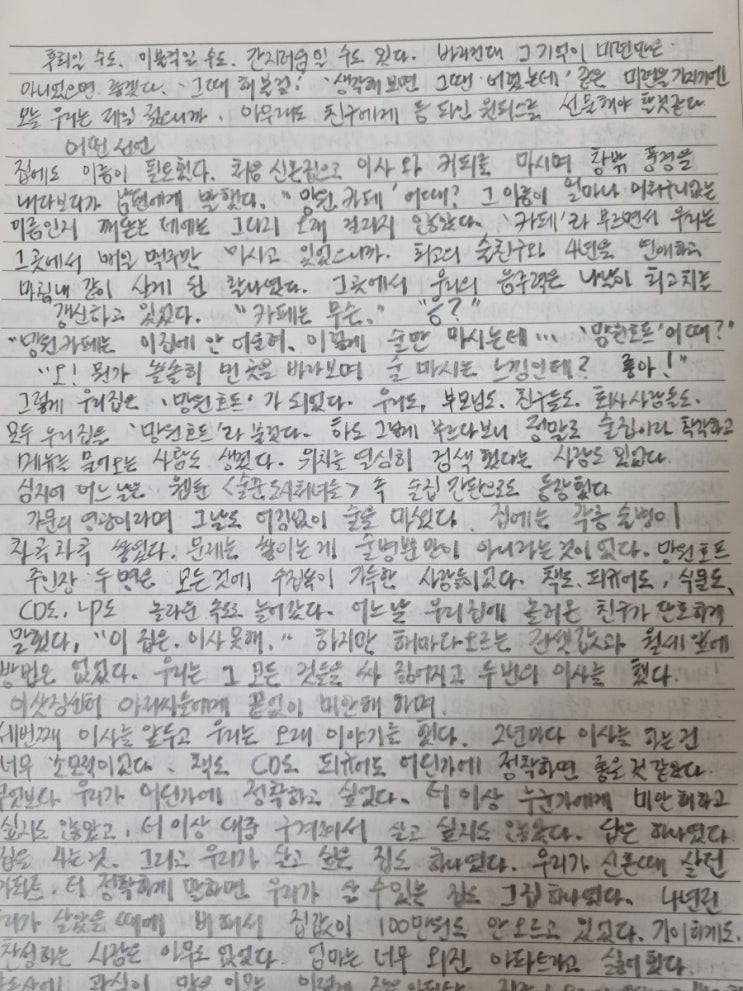 후회일 수도. 이불킥일 수도. 간지러움일 수도 있다. 바라건대 그 기억이 미련만은
아니었으면 좋겠다. '그때 해볼걸!' '생각해보면 그땐 어렸는데' 같은 미련을 가지기엔
오늘 우리는 제일 젊으니까. 아무래도 친구에게 동 파인 원피스를 선물해야 할것같다
어떤 선언
집에도 이름이 필요했다. 처음 신혼집으로 이사 와 커피를 마시며 창밖 풍경을
내다보다가 남편에게 말했다. "'망원카페' 어때? 그 이름이 얼마나 어처구니없는
이름인지 깨닫는 데에는 그다지 오래 걸리지 않았다. '카페'라 부르면서 우리는
그곳에서 매일 맥주만 마시고 있었으니까. 최고의 술친구와 4년을 연애하고
마침내 같이 살게 된 찰나였다. 그곳에서 우리의 음주력은 나날이 최고치를
갱신하고 있었다. "카페는 무슨." "응?"
"망원카페는 이집에 안 어울려. 이렇게 술만 마시는데… '망원호프' 어때?"
"오! 뭔가 쓸쓸히 먼 곳을 바라보며 술 마시는 느낌인데? 좋아!"
그렇게 우리집은 '망원호프'가 되었다. 우리도, 부모님도, 친구들도, 회사사람들도.
모두 우리집을 '망원호프'라 불렀다. 하도 그렇게 부르다보니 정말로 술집이라 착각하고
메뉴를 물어보는 사람도 생겼다. 위치를 열심히 검색했다는 사람도 있었다.
심지어 어느날은 웹툰 <술꾼도시처녀들> 속 술집 간판으로도 등장했다
가문의 영광이라며 그날도 어김없이 술을 마셨다. 집에는 각종 술병이
차곡차곡 쌓였다. 문제는 쌓이는게 술병뿐만이 아니라는것이었다. 망원호프
주인장 두 명은 모든것에 수집욕이 가득한 사람들이었다. 책도, 피규어도, 식물도,
CD도, LP도 놀라운 속도로 늘어갔다. 어느날 우리집에 놀러온 친구가 단호하게
말했다, "이 집은. 이사 못해." 하지만 해마다 오르는 전셋값과 월세 앞에
방법은 없었다. 우리는 그 모든 것들을 싸 짊어지고 두번의 이사를 했다.
이삿짐센터 아저씨들에게 끝없이 미안해 하며.
세번째 이사를 앞두고 우리는 오래 이야기를 했다. 2년마다 이사를 하는건
너무 소모적이었다. 책도 CD도 피규어도 어딘가에 정착하면 좋을것 같았다.
무엇보다 우리가 어딘가에 정착하고 싶었다. 더 이상 누군가에게 미안해하고
싶지도 않았고, 더 이상 대출 구경하며 살고 싶지도 않았다. 답은 하나였다
집을 사는것. 그리고 우리가 살고 싶은 집도 하나였다. 우리가 신혼때 살던
아파트. 더 정확하게 말하면 우리가 살 수있는 집도 그집 하나였다. 4년전
우리가 살았을 때에 비해서 집값이 100만원도 안 오르고 있었다. 기이하게도.
찬성하는 사람은 아무도 없었다. 엄마는 너무 외진 아파트라고 싫어했다.
관심이 많은